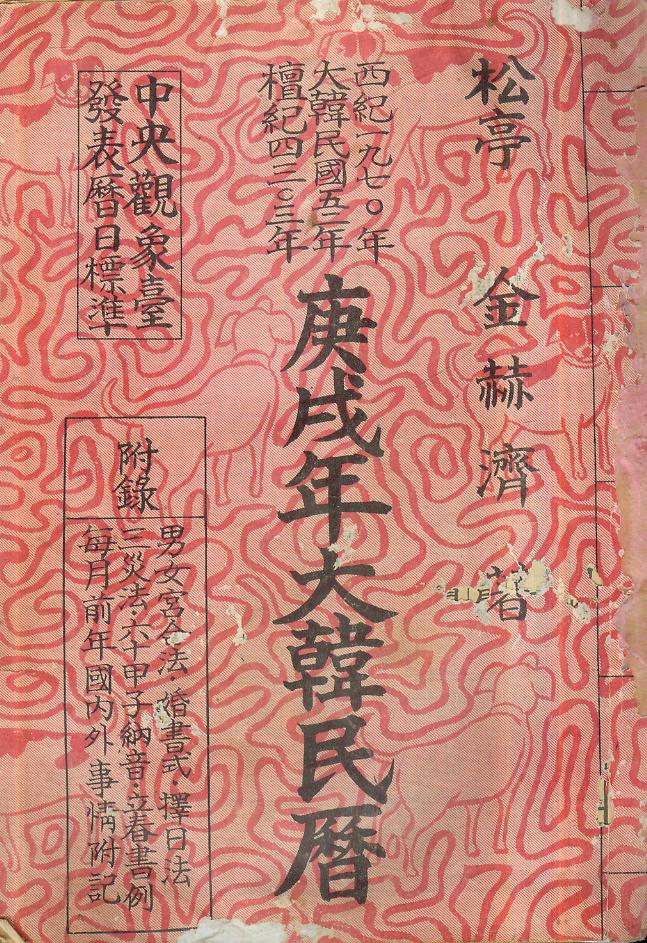 松亭 金赫濟 著
西紀一九七〇年
大韓民國五二年
檀紀四三〇三年
庚戌年大韓民曆
中央觀象臺
發表曆日標準
附錄
男女宮合法·婚書式·擇日法
三災法六十甲子納音·立春書例
每月前年國內外事情附記